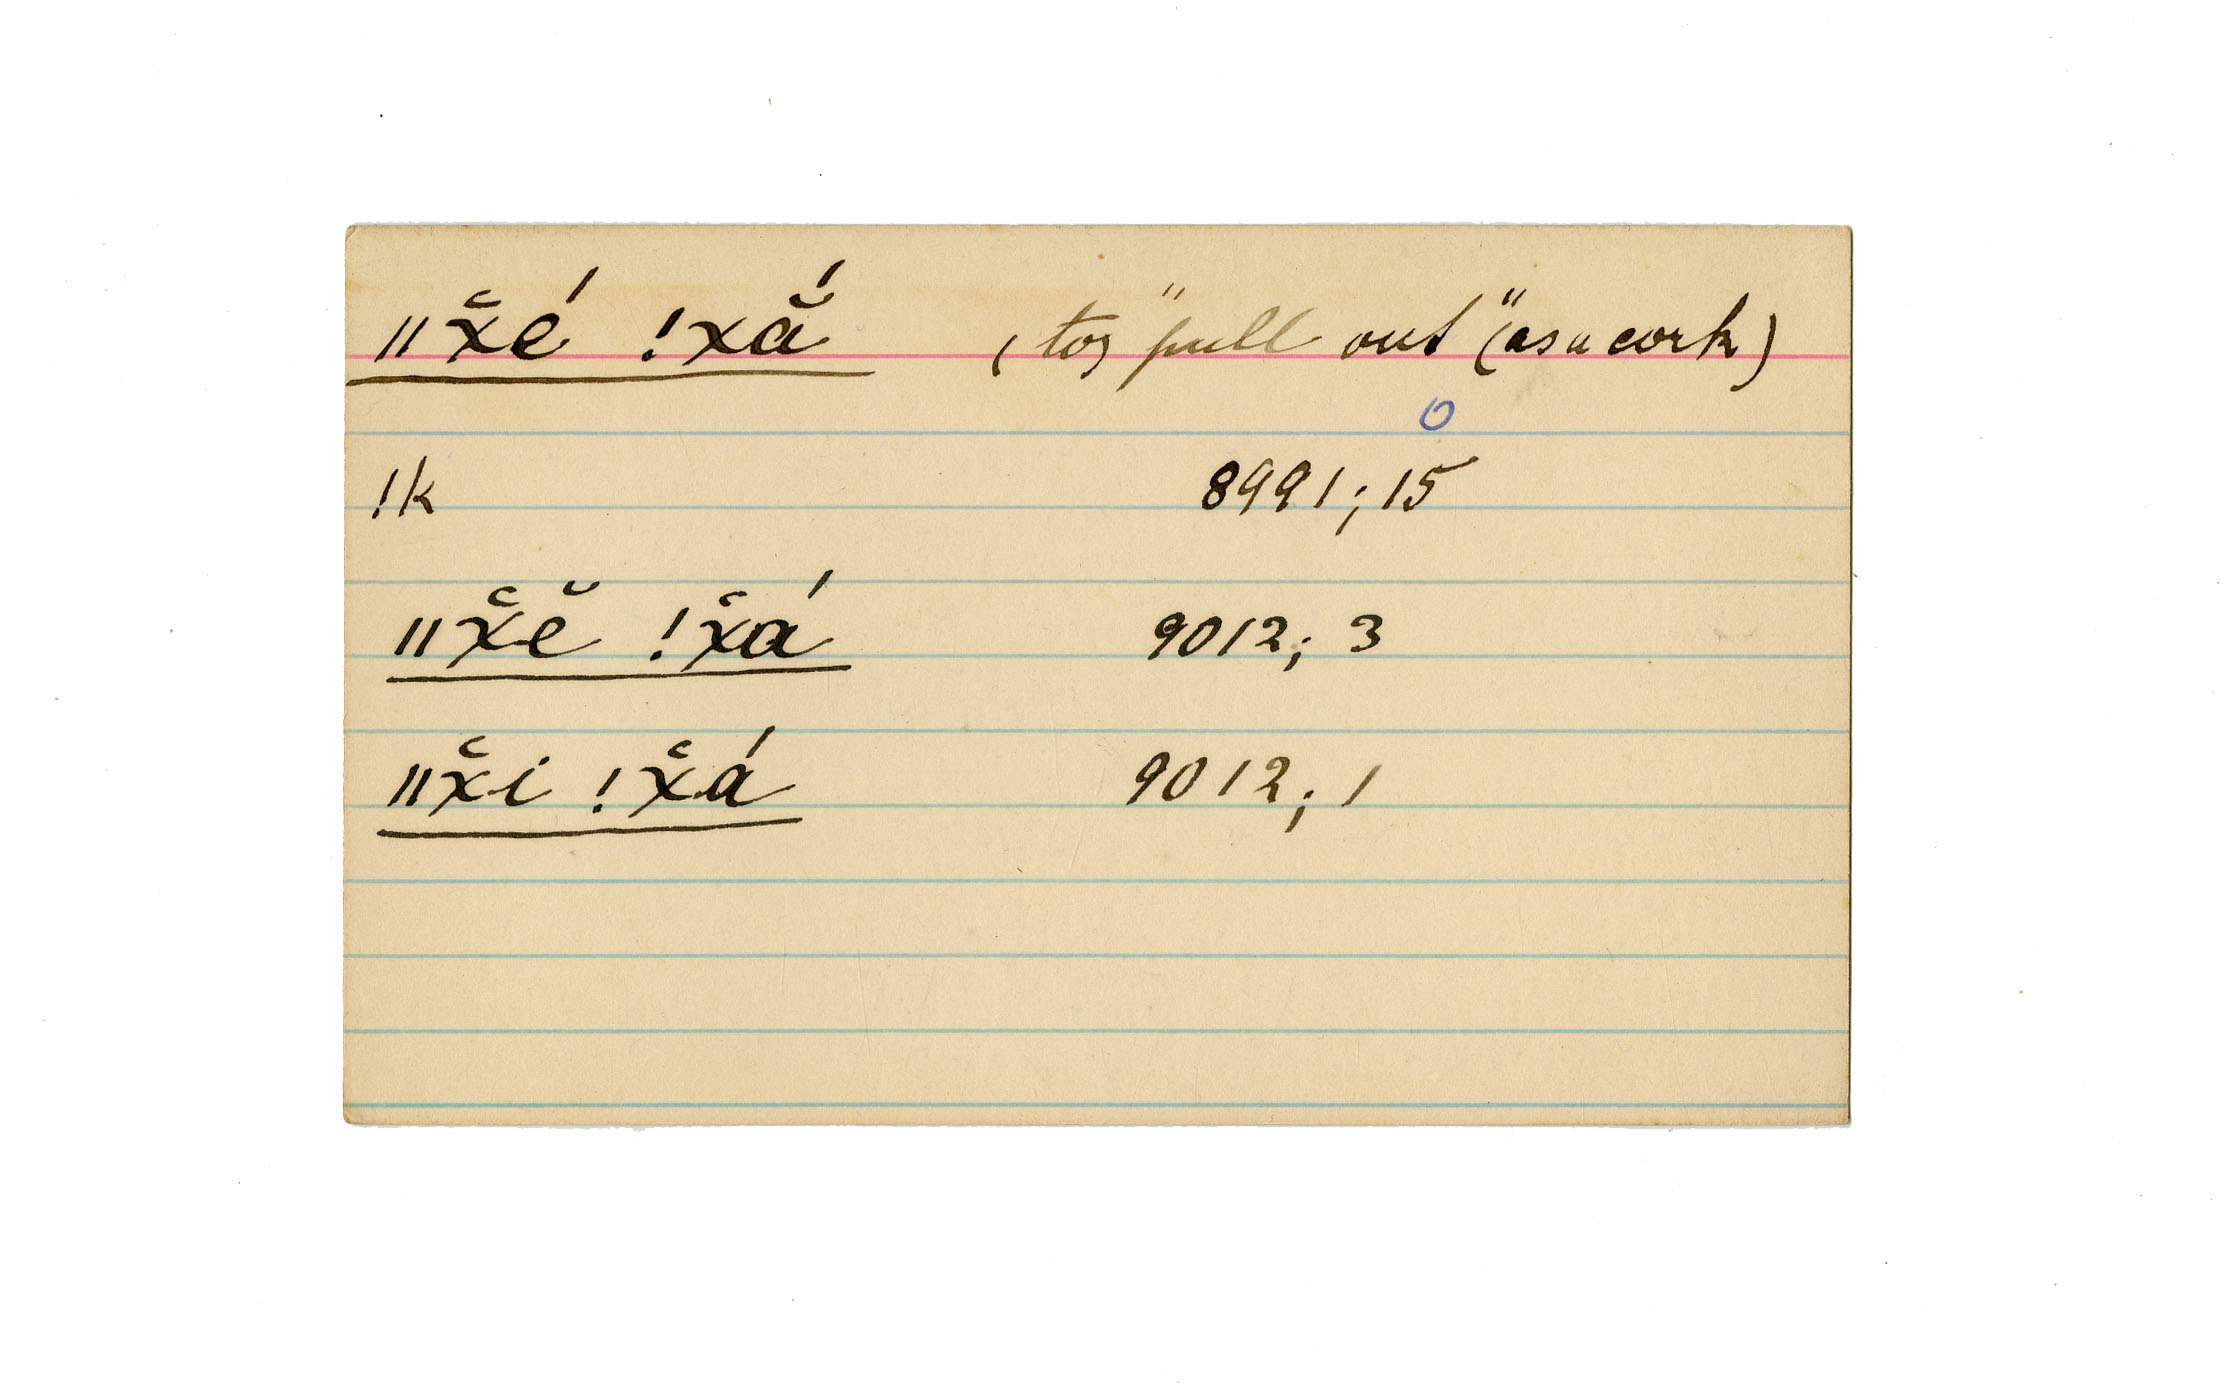 ǁx͑é !xā̆́ (to) "pull out" (as a cork)
O
!k 8991; 15
ǁx͑ĕ !x͑á 9012; 3
ǁx͑i !x͑á 9012; 1